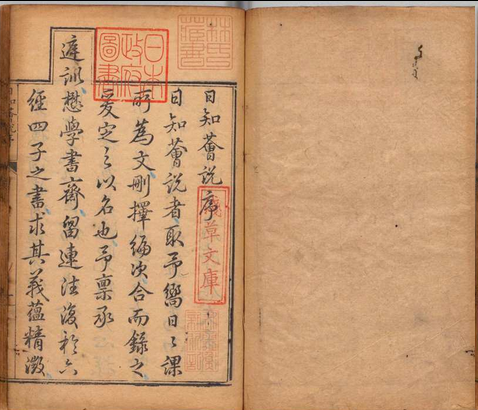 日知薈說序
日知薈說者取予嚮日日課
所為文刪擇編次合而錄之
爰定之以名也予稟承
庭訓懋學書齋留連往復於六
經四子之書求其義蘊精微
日本
政府
圖書
淺草文庫